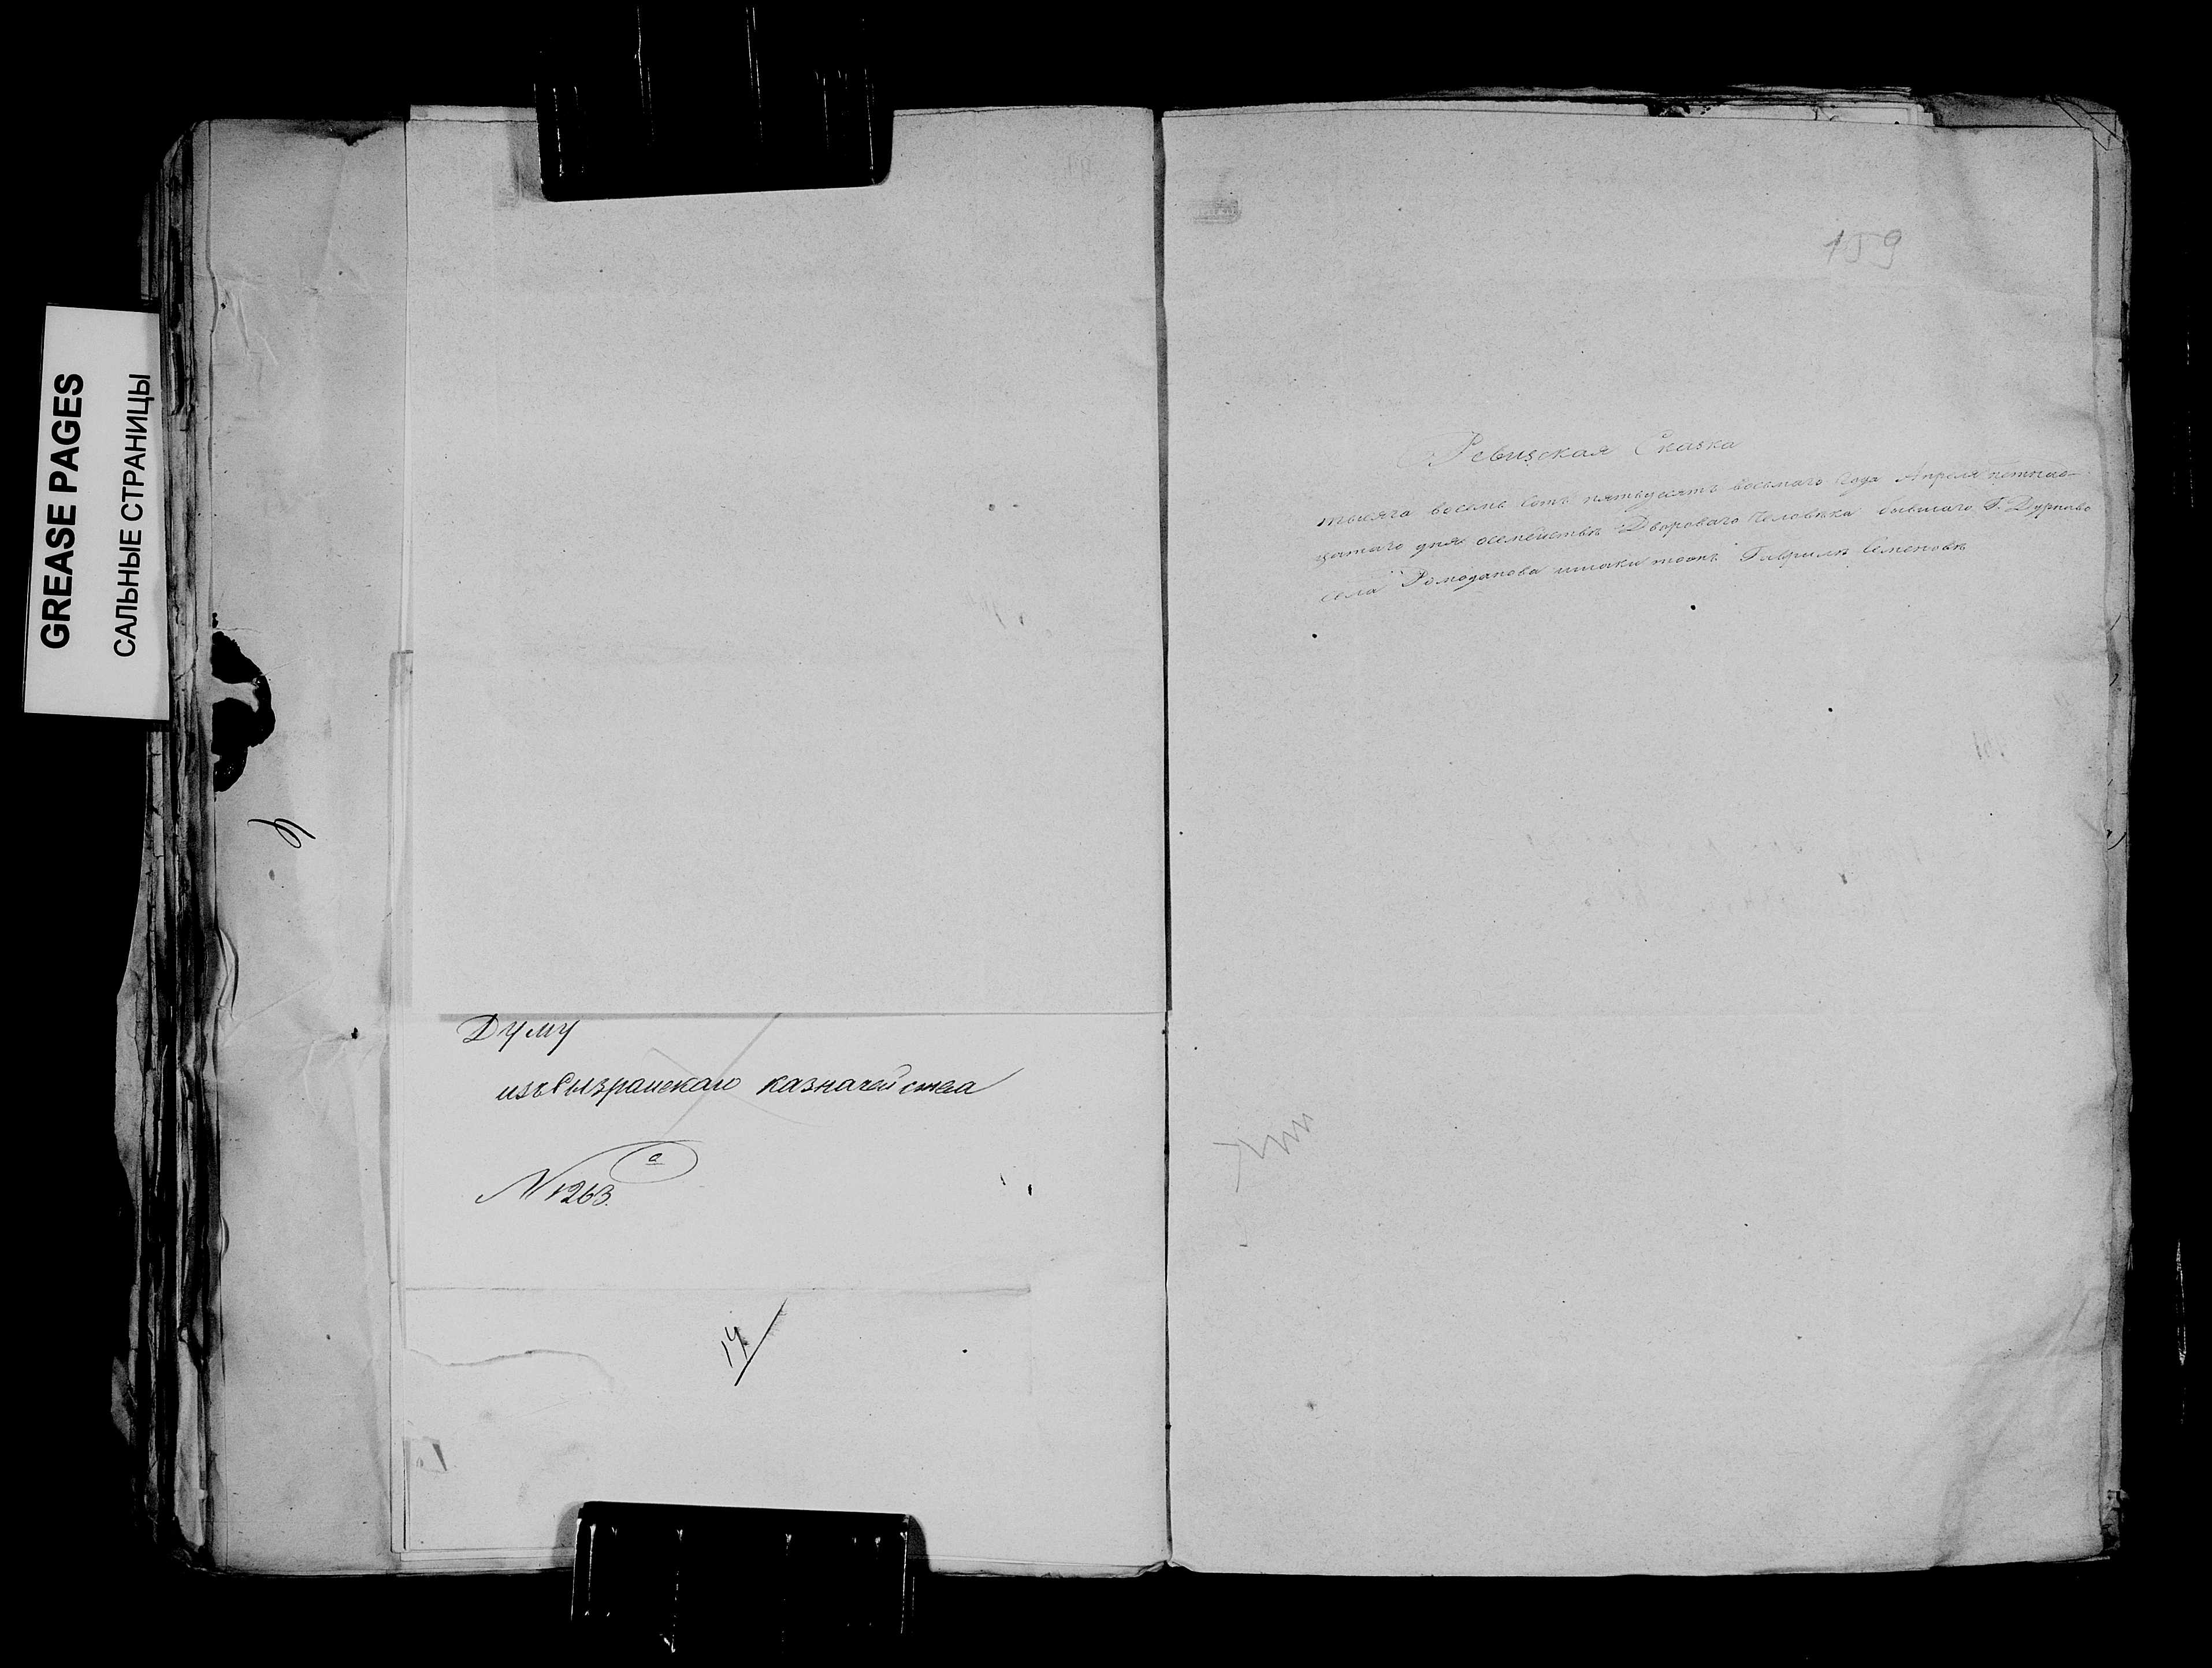 GREASE PAGES
САЛЬНЫЕ СТРАНИЦЫ
Думу
изъ Сызранскаго казначейства
№ 1263.
14
159
Ревизская Сказка
тысяча восемь сотъ пятьдесятъ восьмаго Года Апреля пятнад-
цатаго дня осемействѣ Двороваго Человѣка бывшаго Г. Дурново
села Ромоданова Гаврилѣ Семеновѣ